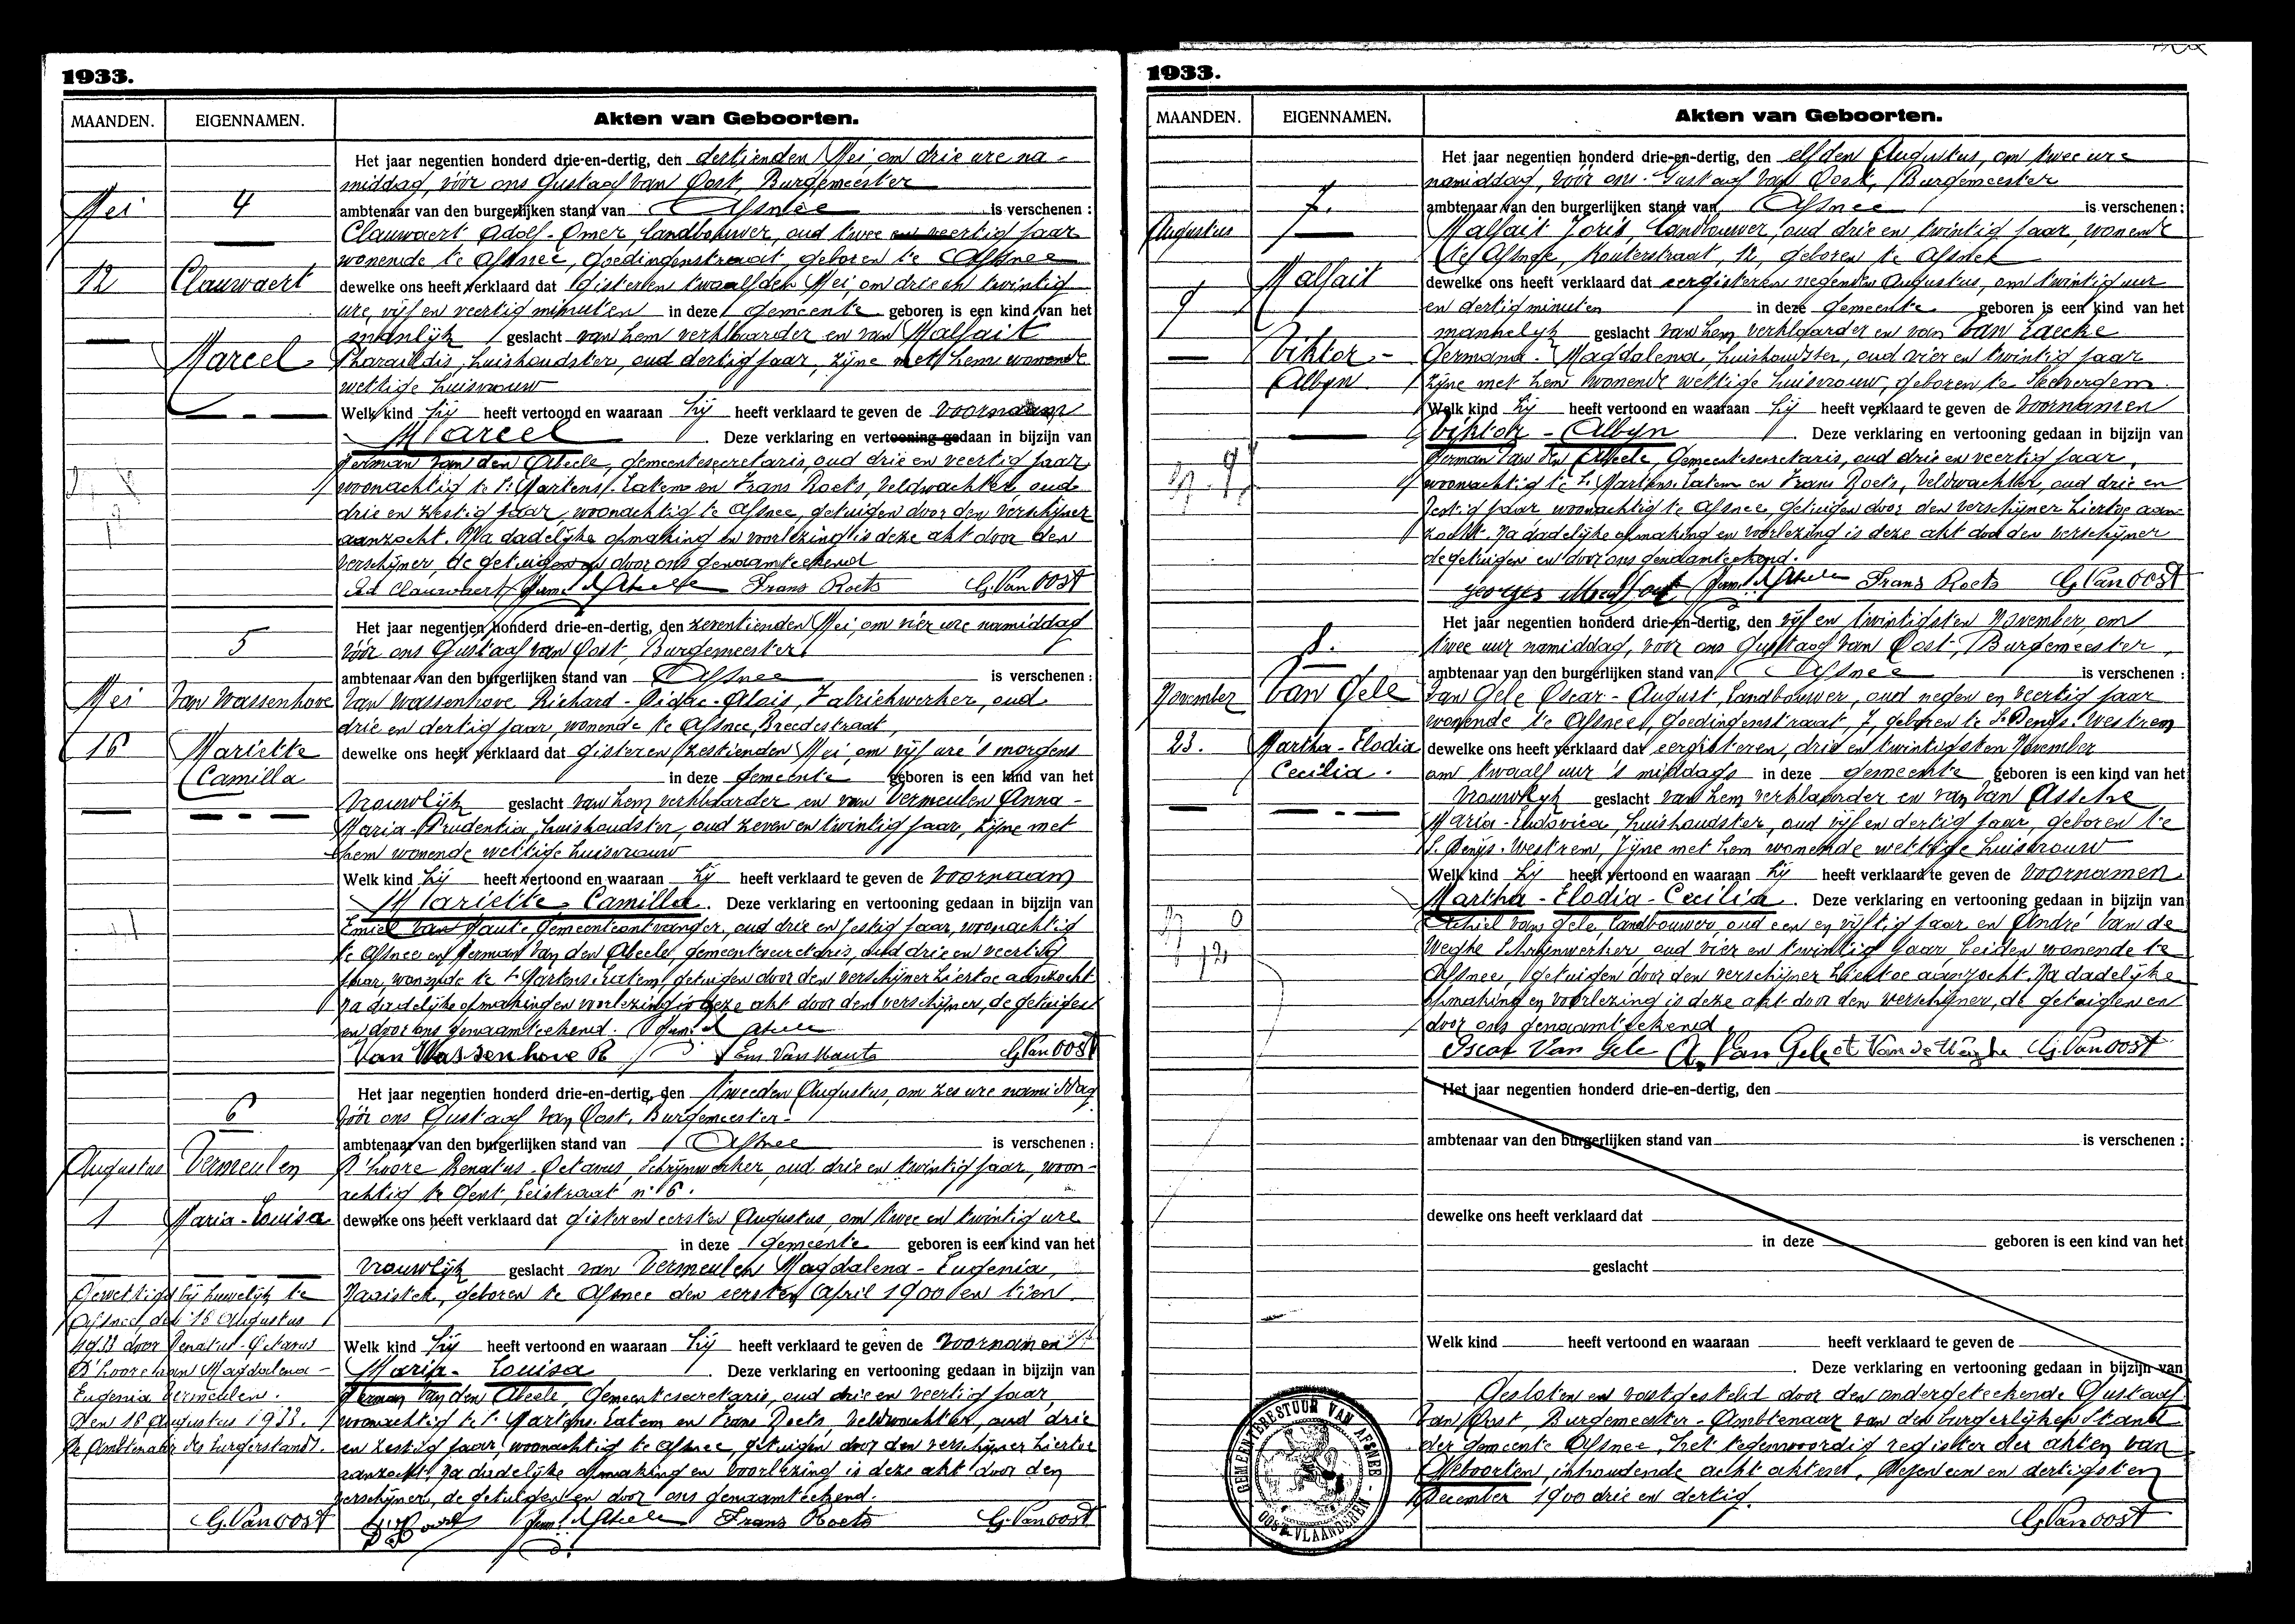 1933.
MAANDEN.
EIGENNAMEN.
Akten van Geboorten.
Mei
4
12
Clauwaert
Marcel
Het jaar negentien honderd drie-en-dertig, den dertienden Mei, om drie ure na-
middag, vóór ons Gustaaf van Oost, Burgemeester
ambtenaar van den burgerlijken stand van Afsnee is verschenen :
Clauwaert Adolf-Omer, landbouwer, oud twee en veertig jaar
wonende te Afsnee, Goedingenstraat, geboren te Afsnee
dewelke ons heeft verklaard dat gisteren twaalfden Mei, om drie en twintig
ure, vijf en veertig minuten in deze gemeente geboren is een kind van het
manlijk geslacht van hem verklaarder en van Malfait
Pharaildis, huishoudster, oud dertig jaar, zijne met hem wonende
wettige huisvrouw
Welk kind hij heeft vertoond en waaraan hij heeft verklaard te geven de voornaam
Marcel. Deze verklaring en vertooning gedaan in bijzijn van
Herman Van den Abeele, gemeentesecretaris, oud drie en veertig jaar
woonachtig te St Martens-Latem en Frans Roets, veldwachter, oud
drie en zestig jaar, woonachtig te Afsnee, getuigen door den verschijner
aanzocht. Na dadelijke opmaking en voorlezing is deze akt door den
verschijner, de getuigen en door ons genaamteekend
Ad Clauwaert Frans Roets G. Van Oost
5
Mei
Van Wassenhove
16
Mariette
Camilla
Het jaar negentien honderd drie-en-dertig, den zeventienden Mei, om vier ure namiddag
vóór ons Gustaaf van Oost, Burgemeester
ambtenaar van den burgerlijken stand van Afsnee is verschenen :
Van Wassenhove Richard-Didac-Alois, Fabriekwerker, oud
drie en dertig jaar, wonende te Afsnee, Breedestraat,
dewelke ons heeft verklaard dat gisteren zestienden Mei, om vijf ure 's morgens
in deze gemeente geboren is een kind van het
vrouwlijk geslacht van hem verklaarder en van Vermeulen Anna-
Maria-Prudentia, huishoudster, oud zeven en twintig jaar, zijne met
hem wonende wettige huisvrouw
Welk kind hij heeft vertoond en waaraan hij heeft verklaard te geven de voornaam
Mariette, Camilla. Deze verklaring en vertooning gedaan in bijzijn van
Emiel van Haute gemeenteontvanger, oud drie en zestig jaar, woonachtig
te Afsnee en Herman Van den Abeele, gemeentesecretaris, oud drie en veertig
jaar, wonende te St Martens-Latem, getuigen door den verschijner hiertoe aanzocht
Na dadelijke opmaking en voorlezing is deze akt door den verschijner, de getuigen
en door ons genaamteekend.
Van Wassenhove R Em Van Haute G. Van Oost
6
Augustus
Vermeulen
1
Maria-Louisa
Het jaar negentien honderd drie-en-dertig, den tweeden Augustus, om zes ure namiddag
vóór ons Gustaaf van Oost, Burgemeester-
ambtenaar van den burgerlijken stand van Afsnee is verschenen :
D'hoore Renatus-Octavus, Schrijnwerker, oud drie en twintig jaar, woon-
achtig te Gent, Leistraat n° 6.
dewelke ons heeft verklaard dat gisteren eersten Augustus, om twee en twintig ure
in deze gemeente geboren is een kind van het
vrouwlijk geslacht van Vermeulen Magdalena-Eugenia,
Naaister, geboren te Afsnee den eersten April 1900 en tien.
Welk kind hij heeft vertoond en waaraan hij heeft verklaard te geven de voornamen
Maria-Louisa. Deze verklaring en vertooning gedaan in bijzijn van
Herman Van den Abeele, Gemeentesecretaris, oud drie en veertig jaar,
woonachtig te St Martens-Latem en Frans Roets, veldwachter, oud drie
en zestig jaar, woonachtig te Afsnee, getuigen door den verschijner hiertoe
aanzocht. Na dadelijke opmaking en voorlezing is deze akt door den
verschijner, de getuigen en door ons genaamteekend.
Frans Roets G. Van Oost
Gewettigd bij huwelijk te
Afsnee, den 16 Augustus
1933 door Renatus-Octavus
D'hoore aan Magdalena-
Eugenia Vermeulen.
Den 16 Augustus 1933.
De Ambtenaar des burgerstands.
G. Van Oost
1933.
MAANDEN.
EIGENNAMEN.
Akten van Geboorten.
7.
Augustus
Malfait
9
Viktor-
Albyn
Het jaar negentien honderd drie-en-dertig, den elfden Augustus, om twee ure
namiddag, vóór ons Gustaaf van Oost, Burgemeester
ambtenaar van den burgerlijken stand van Afsnee is verschenen :
Malfait Joris, landbouwer, oud drie en twintig jaar, wonende
te Afsnee, Kouterstraat, 12, geboren te Afsnee
dewelke ons heeft verklaard dat eergisteren negenden Augustus, om twintig uur
en dertig minuten in deze gemeente geboren is een kind van het
mannelijk geslacht van hem verklaarder en van Van Laecke
Germana-Magdalena, huishoudster, oud vier en twintig jaar
zijne met hem wonende wettige huisvrouw, geboren te
Welk kind hij heeft vertoond en waaraan hij heeft verklaard te geven de voornamen
Viktor-Albyn. Deze verklaring en vertooning gedaan in bijzijn van
Herman Van den Abeele, Gemeentesecretaris, oud drie en veertig jaar,
woonachtig te St Martens-Latem en Frans Roets, Veldwachter, oud drie en
zestig jaar woonachtig te Afsnee, getuigen door den verschijner hiertoe aan-
zocht. Na dadelijke opmaking en voorlezing is deze akt door den verschijner
de getuigen en door ons genaamteekend.
Georges Malfait Frans Roets G. Van Oost
8.
November
Van Gele
23.
Martha-Elodia
Cecilia.
Het jaar negentien honderd drie-en-dertig, den vijf en twintigsten November, om
twee uur namiddag, vóór ons Gustaaf van Oost, Burgemeester,
ambtenaar van den burgerlijken stand van Afsnee is verschenen :
Van Gele Oscar-August, landbouwer, oud negen en veertig jaar
wonende te Afsnee, Goedingenstraat, 7, geboren te St Denijs-Westrem
dewelke ons heeft verklaard dat eergisteren, drie en twintigsten November
om twaalf uur 's middags in deze gemeente geboren is een kind van het
vrouwlijk geslacht van hem verklaarder en van Van Assche
Maria-Ludovica, huishoudster, oud vijf en dertig jaar, geboren te
St Denijs-Westrem, zijne met hem wonende wettige huisvrouw
Welk kind hij heeft vertoond en waaraan hij heeft verklaard te geven de voornamen
Martha-Elodia-Cecilia. Deze verklaring en vertooning gedaan in bijzijn van
Achiel van Gele, landbouwer, oud een en vijftig jaar en André Van de
Weghe Schrijnwerker, oud vier en twintig jaar, beiden wonende te
Afsnee, getuigen door den verschijner hiertoe aanzocht. Na dadelijke
opmaking en voorlezing is deze akt door den verschijner, de getuigen en
door ons genaamteekend.
Oscar Van Gele A. Van Gele et Van de Weghe G. Van Oost
Het jaar negentien honderd drie-en-dertig, den
ambtenaar van den burgerlijken stand van is verschenen :
dewelke ons heeft verklaard dat
in deze geboren is een kind van het
geslacht
Welk kind heeft vertoond en waaraan heeft verklaard te geven de
. Deze verklaring en vertooning gedaan in bijzijn van
Gesloten en vastgesteld door den ondergeteekende Gustaaf
Van Oost, Burgemeester-Ambtenaar van den burgerlijken Stand
der gemeente Afsnee, het tegenwoordig register der akten van
Geboorten, inhoudende acht akten. Dezen een en dertigsten
December 1900 drie en dertig.
G. Van Oost
GEMEENTEBESTUUR VAN AFSNEE
OOST-VLAANDEREN